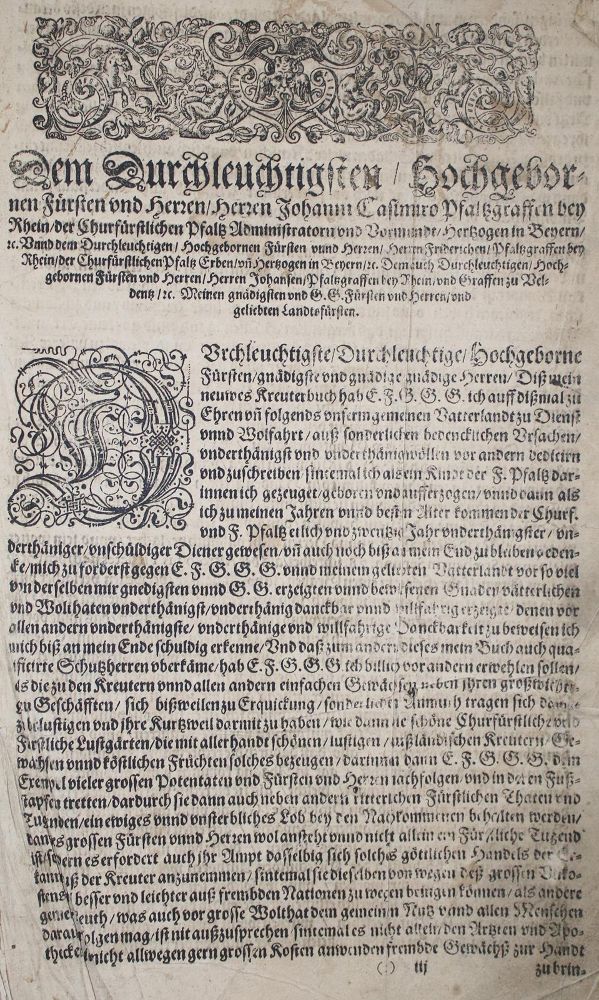 Dem Durchleuchtigsten/ Hochgebor-
nen Fürsten vnd Herren/ Herren Johann Casimiro Pfaltzgraffen bey
Rhein/ der Churfürstlichen Pfaltz Administratorn vnd Vormundt/ Hertzogen in Beyern/
ꝛc. Vnnd dem Durchleuchtigen/ Hochgebornen Fürsten vnnd Herren/ Herrn Friderichen/ Pfaltzgraffen bey
Rhein/ der Churfürstlichen Pfaltz Erben/ vñ Hertzogen in Beyern/ ꝛc. Dem auch Durchleuchtigen/ Hoch-
gebornen Fürsten vnd Herren/ Herren Johansen/ Pfaltzgraffen bey Rhein/ vnd Graffen zu Vel-
dentz/ ꝛc. Meinen gnädigsten vnd G. G. Fürsten vnd Herren/ vnd
geliebten Landtsfürsten.
DVrchleuchtigste/ Durchleuchtige/ Hochgeborne
Fürsten/ gnädigste vnd gnädige gnädige Herren/ Diß mein
neuwes Kreuterbuch hab E. F. G. G. G. ich auff dißmal zu
Ehren vñ folgends vnserm gemeinen Vatterlandt zu Dienst
vnnd Wolfahrt/ auß sonderlichen bedencklichen Vrsachen/
vnderthänigst vnd vnderthänig wöllen vor andern dedicirn
vnd zuschreiben/ sintemal ich als ein Kindt der F. Pfaltz dar-
innen ich gezeuget/ geboren vnd aufferzogen/ vnnd dann als
ich zu meinen Jahren vnnd besten Alter kommen der Churf.
vnd F. Pfaltz etlich vnd zwentzig Jahr vnderthänigster/ vn-
derthäniger/ vnschüldiger Diener gewesen/ vñ auch noch biß an mein End zu bleiben geden-
cke/ mich zu forderst gegen E. F. G. G. G. vnnd meinem geliebten Vatterlandt vor so viel
von derselben mir gnedigsten vnnd G. G. erzeigten vnnd bewisenen Gnaden vätterlichen
vnd Wolthaten vnderthänigst/ vnderthänig danckbar vnnd willfahrig erzeigte/ denen vor
allen andern vnderthänigste/ vnderthänige vnd willfahrige Danckbarkeit zu beweisen ich
mich biß an mein Ende schuldig erkenne/ Vnd daß zum andern dieses mein Buch auch qua-
lificirte Schutzherren vberkäme/ hab E. F. G. G. G. ich billich vor andern erwehlen sollen/
als die zu den Kreutern vnnd allen andern einfachen Gewächsen neben jhren großwichti-
gen Geschäfften/ sich bißweilen zu Erquickung/ sonderlicher Anmuth tragen sich damit
zu belustigen vnd jhre Kurtzweil darmit zu haben/ wie dann die schöne Churfürstliche vnd
Fürstliche Lustgärten/ die mit allerhandt schönen/ lustigen/ außländischen Kreutern/ Ge-
wächsen vnnd köstlichen Früchten solches bezeugen/ darinnen dann E. F. G. G. G. dem
Exempel vieler grossen Potentaten vnd Fürsten vnd Herren nachfolgen/ vnd in deren Fuß-
stapfen tretten/ dardurch sie dann auch neben andern ritterlichen Fürstlichen Thaten vnd
Tugenden/ ein ewiges vnnd vnsterbliches Lob bey den Nachkommenen behalten werden/
dann es grossen Fürsten vnnd Herren wol ansteht vnnd nicht allein ein Fürstliche Tugend
ist/ sondern es erfordert auch jhr Ampt dasselbig sich solches göttlichen Handels der Er-
kantnuß der Kreuter anzunemmen/ sintemal sie dieselben von wegen deß grossen Vnko-
stens besser vnd leichter auß frembden Nationen zu wegen bringen können/ als andere
gemeine Leuth/ was auch vor grosse Wolthat dem gemeinen Nutz vnnd allen Menschen
darauß folgen mag/ ist nit außzusprechen/ sintemal es nicht allein den Artzten vnd Apo-
thickern nicht allwegen gern grossen Kosten anwenden frembde Gewächß zur Handt
(:) iij zu brin-